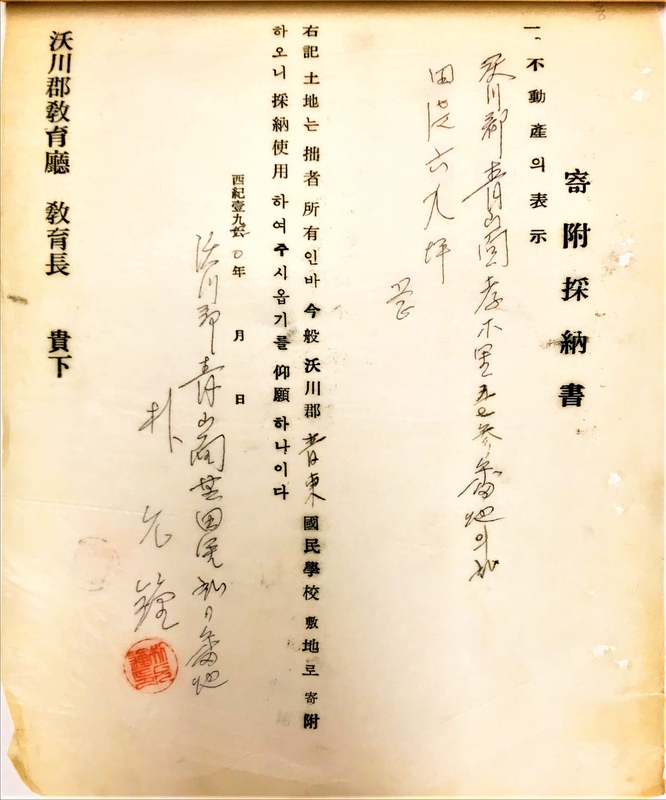 寄附採納書
一、不動産의表示
沃川郡 靑山面 孝木里 五七參番地의
田 六九坪
右記 土地는 拙者 所有인바 今般 沃川郡 靑東 國民學校 敷地로 寄附
하오니 採納使用 하여 주시옵기를 仰願 하나이다
西紀壹九六〇年 月 日
沃川郡 靑山面 番地
朴 允 鍾
沃川郡敎育廳 敎育長 貴下